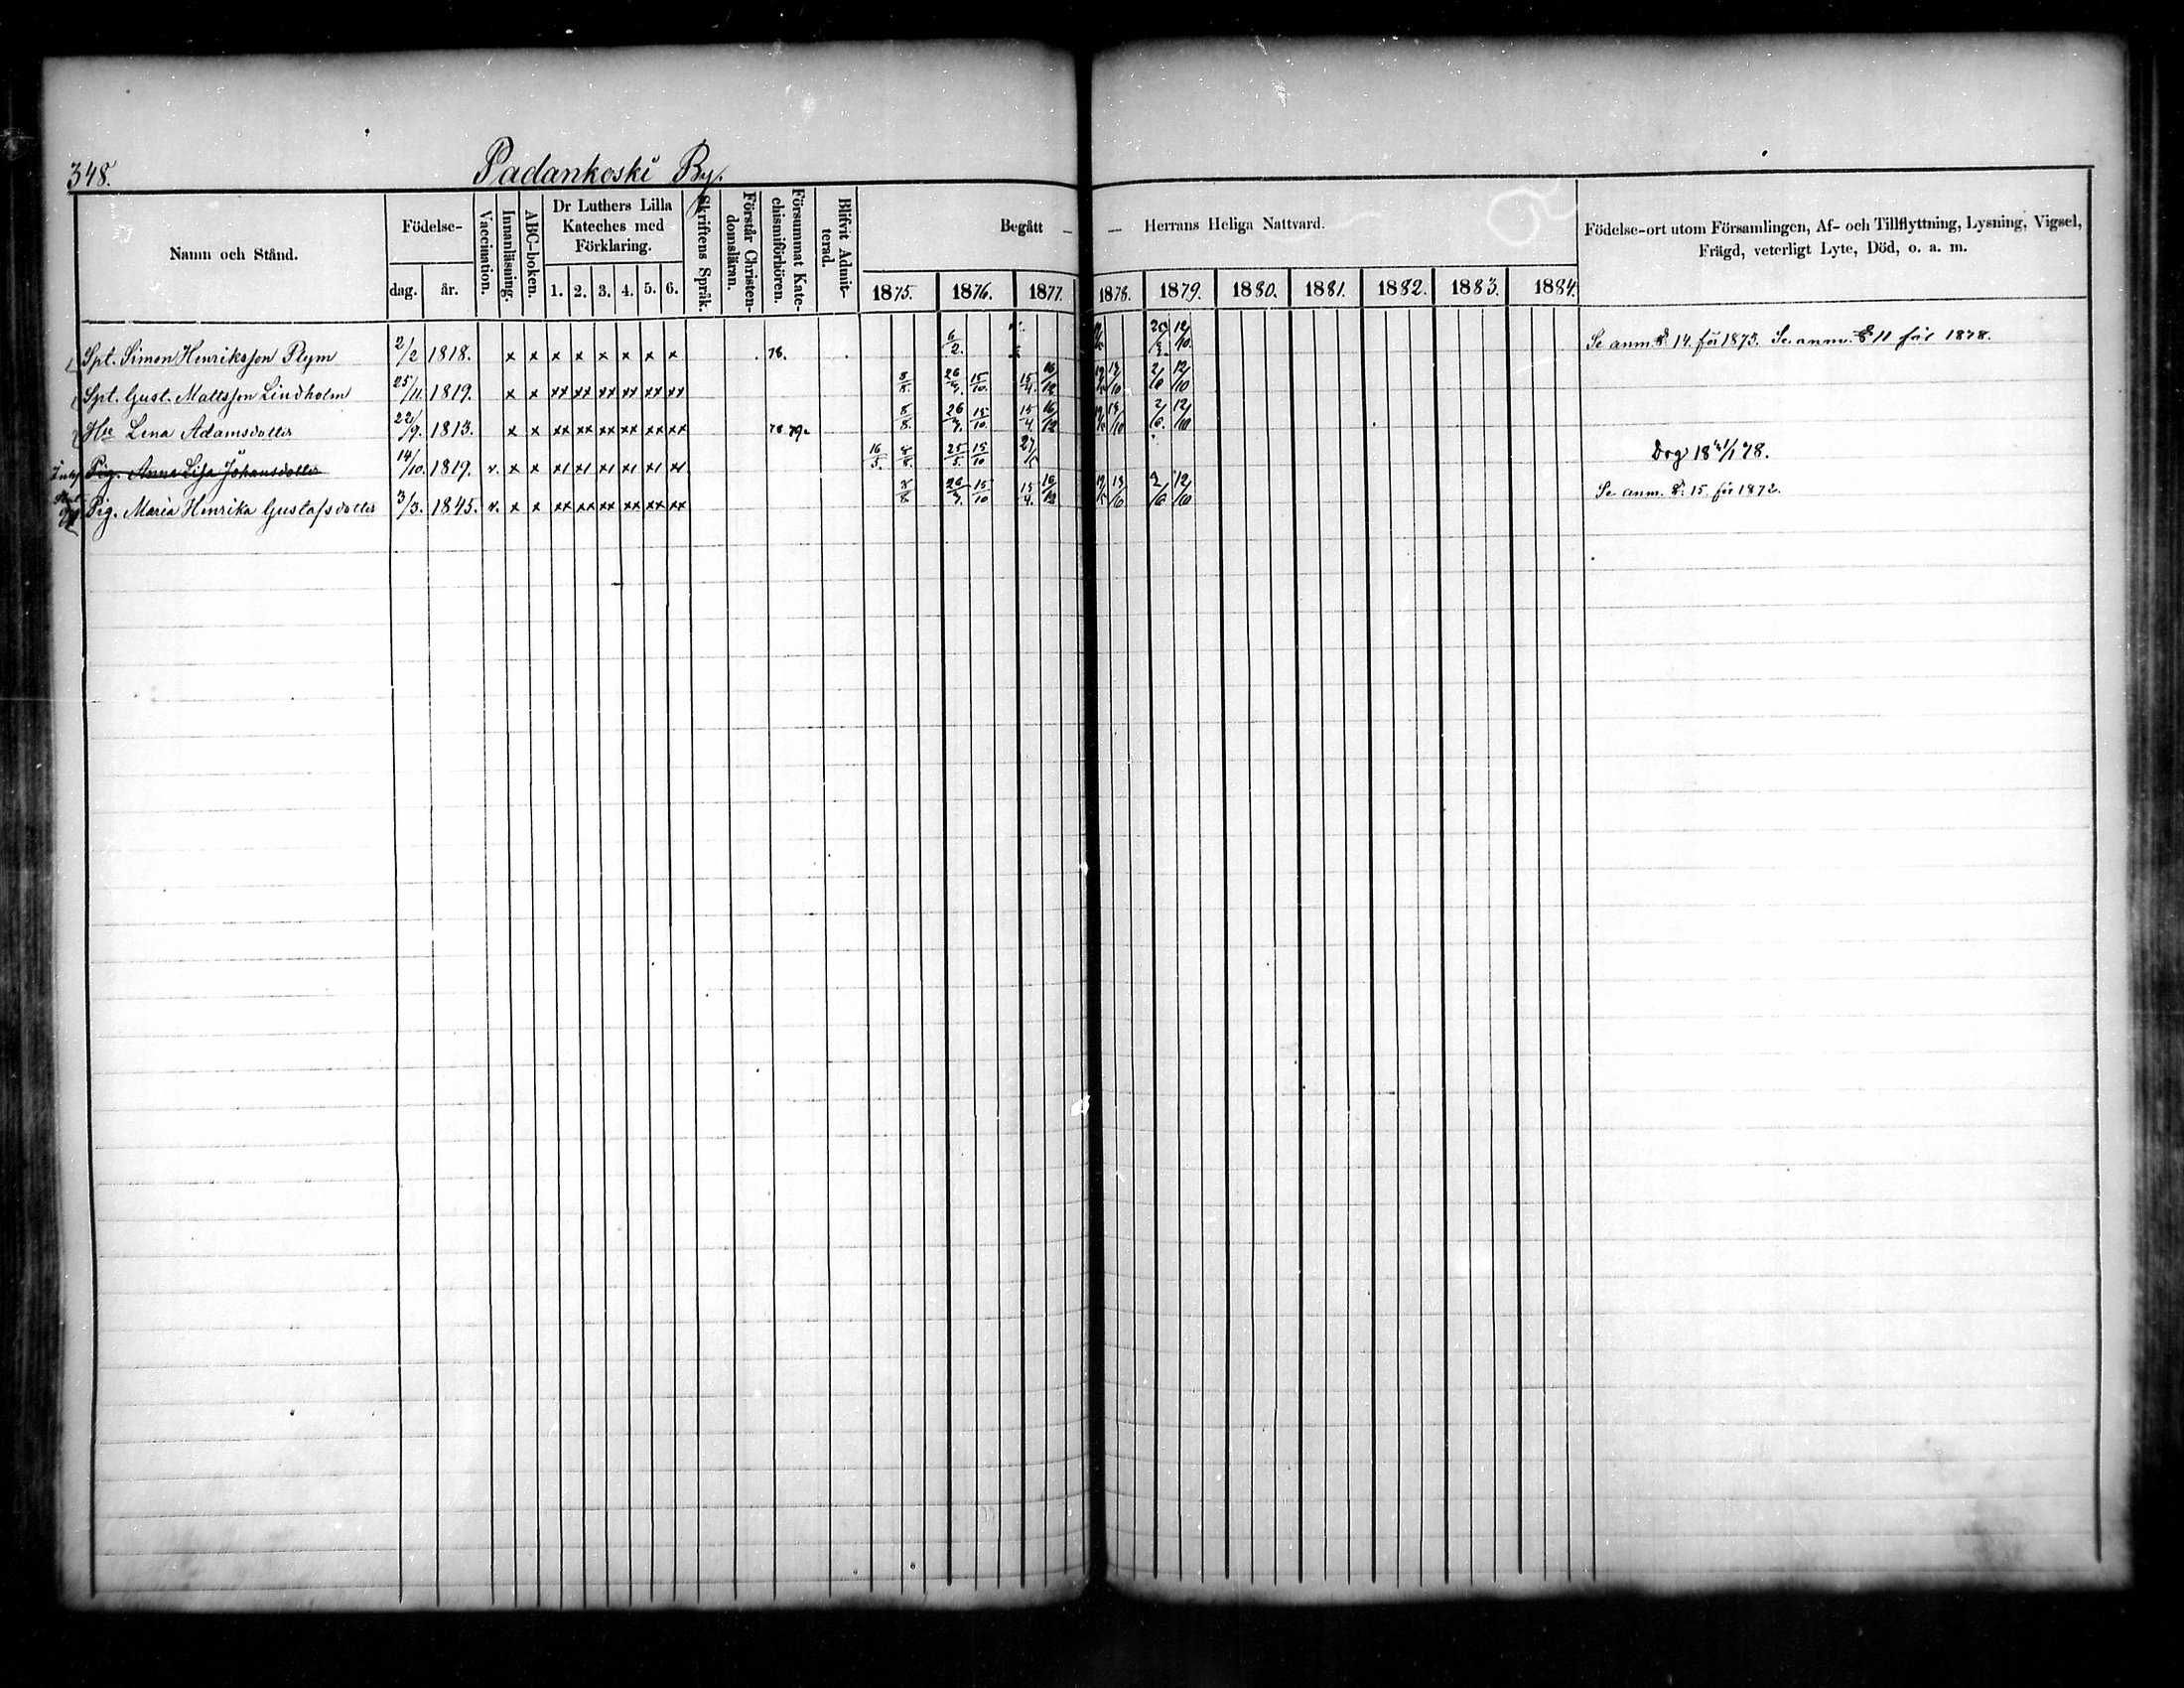 348.
Padankoski By.
Namn och Stånd.
Födelse-
dag. år.
Vaccination.
Innanläsning.
ABC-boken.
Dr Luthers Lilla
Kateches med
Förklaring.
1. 2. 3. 4. 5. 6.
Skriftens Språk.
Förstår Christen-
domsläran.
Försummat Kate-
chismiförhören.
Blifvit Admit-
terad.
Begått — — Herrans Heliga Nattvard.
1875. 1876. 1877. 1878. 1879. 1880. 1881. 1882. 1883. 1884.
Födelse-ort utom Församlingen, Af- och Tillflyttning, Lysning, Vigsel,
Frägd, veterligt Lyte, Död, o. a. m.
Spt. Simon Henriksson Plym 2/2 1818. x x x x x x x x 78. 6/2. 12/10. Se anm. 14. för 1873. Se anm. 11 för 1878.
Spt. Gust. Mattsson Lindholm 25/11. 1819. x x xx xx xx xx xx xx 8/8. 15/10. 15/4. 16/12 2/6 12/10
Hu Lena Adamsdotter 22/9. 1813. x x xx xx xx xx xx xx 78 79. 8/8. 15/10. 15/4 16/12 2/6. 12/10
Pig. Anna Lisa Johansdotter 14/10. 1819. v. x x x1 x1 x1 x1 x1 x1 16/5. 8/8. 25/5. 15/10 Dog 78.
Pig. Maria Henrika Gustafsdotter 3/3. 1845. v. x x xx xx xx xx xx xx 8/8 15/10 15/4. 16/12 2/6 12/10 Se anm. 15. för 1872.